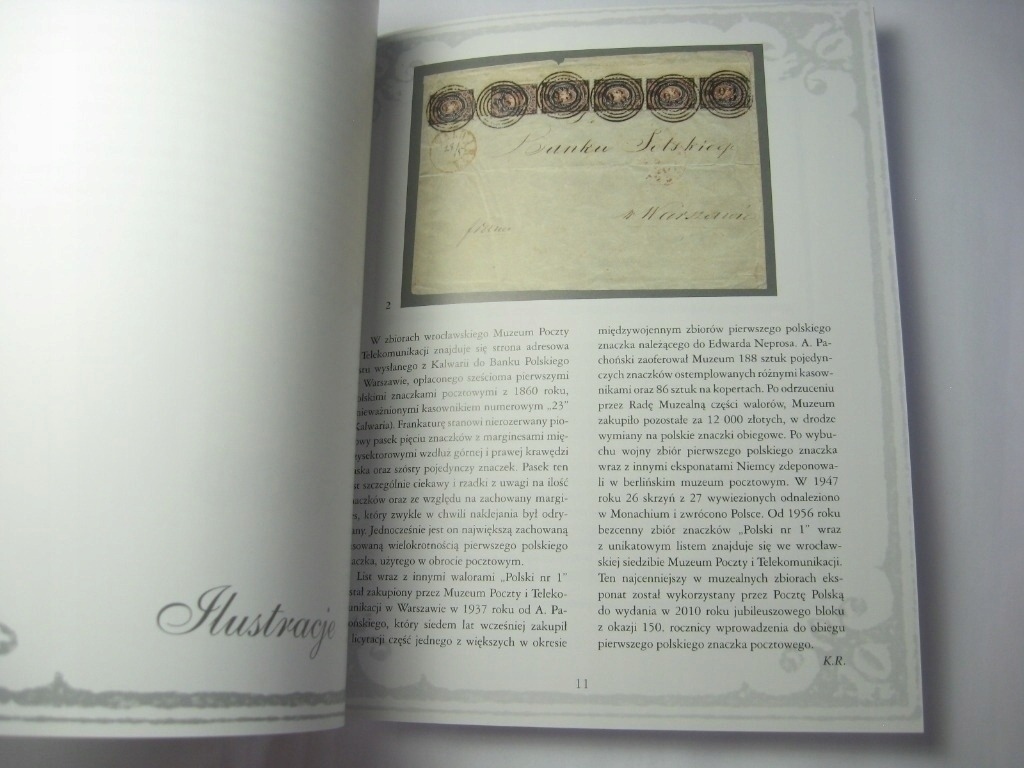 Ilustracje
Banku Polskiego
w Warszawie
franco
2
W zbiorach wrocławskiego Muzeum Poczty
Telekomunikacji znajduje się strona adresowa
wysłanego z Kalwarii do Banku Polskiego
Warszawie, opłaconego sześcioma pierwszymi
znaczkami pocztowymi z 1860 roku,
kasownikiem numerowym „23”
Frankaturę stanowi nierozerwany pio-
pasek pięciu znaczków z marginesami mię-
wzdłuż górnej i prawej krawędzi
oraz szósty pojedynczy znaczek. Pasek ten
szczególnie ciekawy i rzadki z uwagi na ilość
oraz ze względu na zachowany margi-
który zwykle w chwili naklejania był odry-
Jednocześnie jest on największą zachowaną
wielokrotnością pierwszego polskiego
użytego w obrocie pocztowym.
List wraz z innymi walorami „Polski nr 1”
zakupiony przez Muzeum Poczty i Teleko-
w Warszawie w 1937 roku od A. Pa-
który siedem lat wcześniej zakupił
część jednego z większych w okresie
międzywojennym zbiorów pierwszego polskiego
znaczka należącego do Edwarda Neprosa. A. Pa-
choński zaoferował Muzeum 188 sztuk pojedyn-
czych znaczków ostemplowanych różnymi kasow-
nikami oraz 86 sztuk na kopertach. Po odrzuceniu
przez Radę Muzealną części walorów, Muzeum
zakupiło pozostałe za 12 000 złotych, w drodze
wymiany na polskie znaczki obiegowe. Po wybu-
chu wojny zbiór pierwszego polskiego znaczka
wraz z innymi eksponatami Niemcy zdeponowa-
li w berlińskim muzeum pocztowym. W 1947
roku 26 skrzyń z 27 wywiezionych odnaleziono
w Monachium i zwrócono Polsce. Od 1956 roku
bezcenny zbiór znaczków „Polski nr 1” wraz
z unikatowym listem znajduje się we wrocław-
skiej siedzibie Muzeum Poczty i Telekomunikacji.
Ten najcenniejszy w muzealnych zbiorach eks-
ponat został wykorzystany przez Pocztę Polską
do wydania w 2010 roku jubileuszowego bloku
z okazji 150. rocznicy wprowadzenia do obiegu
pierwszego polskiego znaczka pocztowego.
K.R.
11